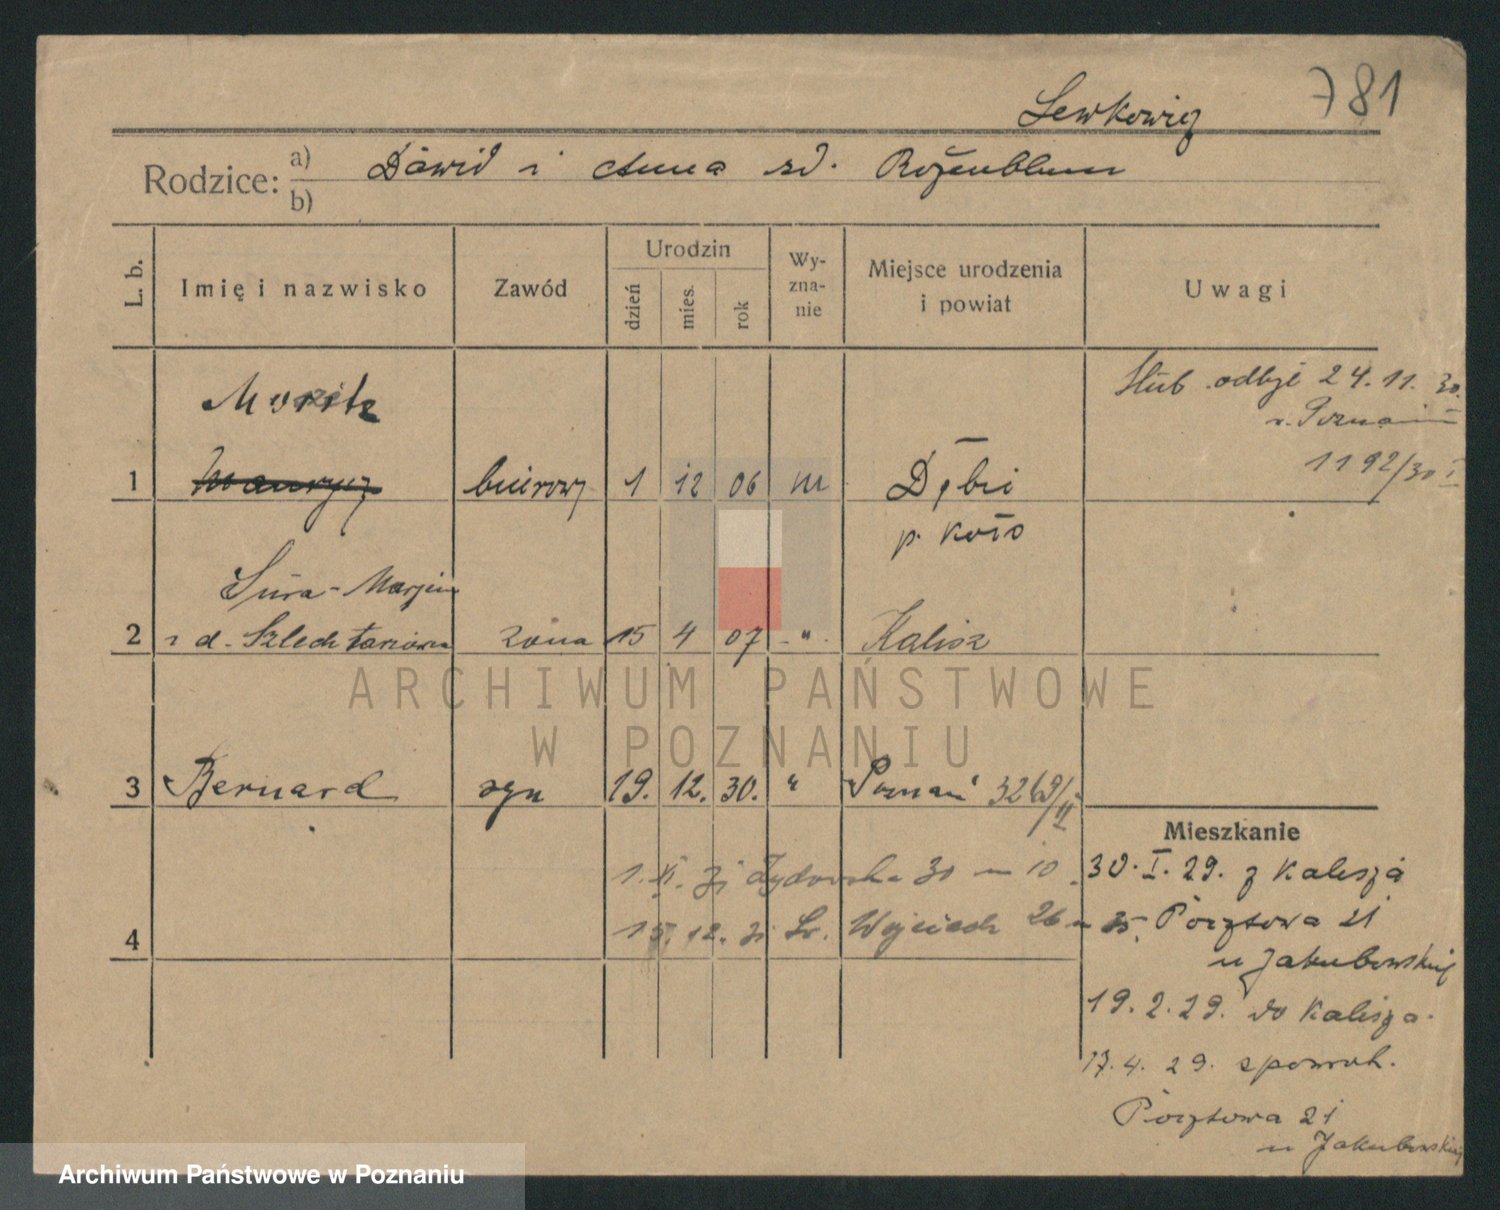 781
Lewkowicz
Rodzice: a) Dawid i Anna zd. Rożenblum
b)
L. b. Imię i nazwisko Zawód Urodzin dzień mies. rok Wy-zna-nie Miejsce urodzenia i powiat Uwagi
Moritz
Ślub odbył 24.11.30.
w Poznaniu
1192/30 I
1 Maurycy biurowy 1 12 06 m Dębie
p. Koło
Sura-Marjem
2 z d. Szlechtarówna żona 15 4 07 -"- Kalisz
3 Bernard syn 19. 12. 30. " Poznań 3269/II
Mieszkanie
1. XI. 31 Żydowska 30 m 10
30. I. 29. z Kalisza
4
15. 12. 31 Św. Wojciech 26 m 35.
Pocztowa 21
u Jakubowskiej
19. 2. 29. do Kalisza.
17. 4. 29. z powrotem.
Pocztowa 21
u Jakubowskiej
ARCHIWUM PAŃSTWOWE
W POZNANIU
Archiwum Państwowe w Poznaniu